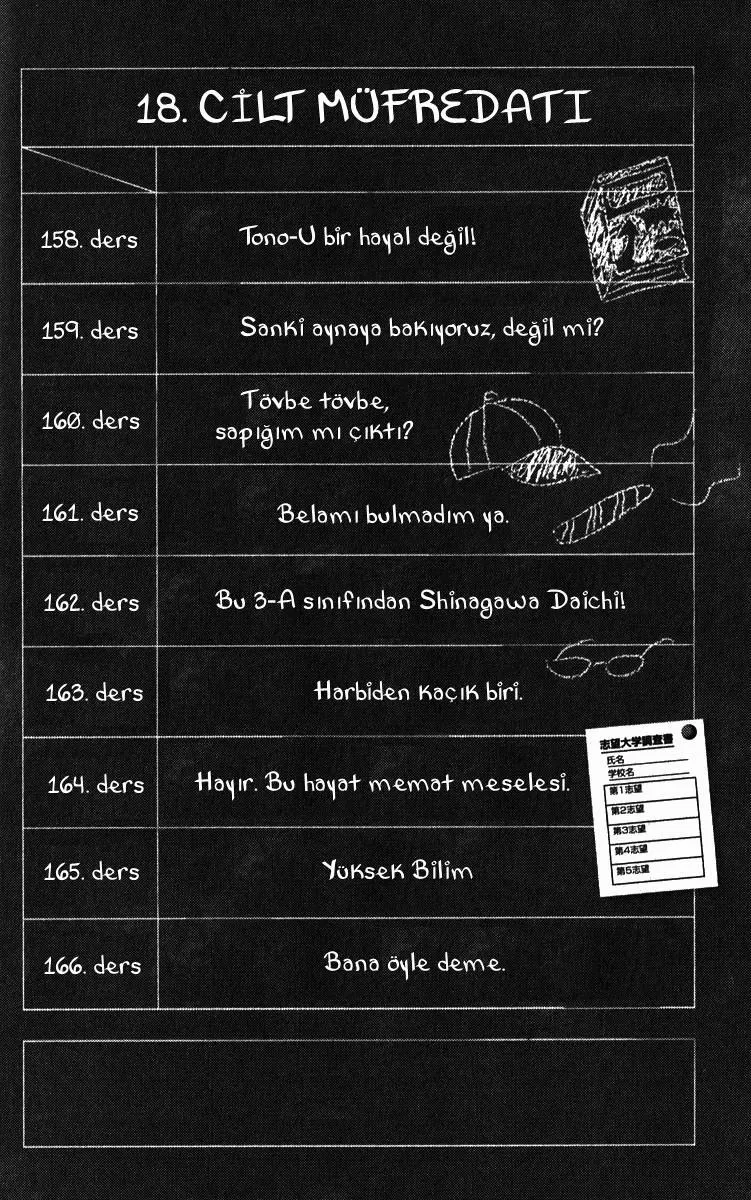 18. CİLT MÜFREDATI
158. ders
Tono-U bir hayal değil!
159. ders
Sanki aynaya bakıyoruz, değil mi?
160. ders
Tövbe tövbe,
sapığım mı çıktı?
161. ders
Belamı bulmadım ya.
162. ders
Bu 3-A sınıfından Shinagawa Daichi!
163. ders
Harbiden kaçık biri.
164. ders
Hayır. Bu hayat memat meselesi.
165. ders
Yüksek Bilim
166. ders
Bana öyle deme.
志望大学調査書
氏名
学校名
第1志望
第2志望
第3志望
第4志望
第5志望